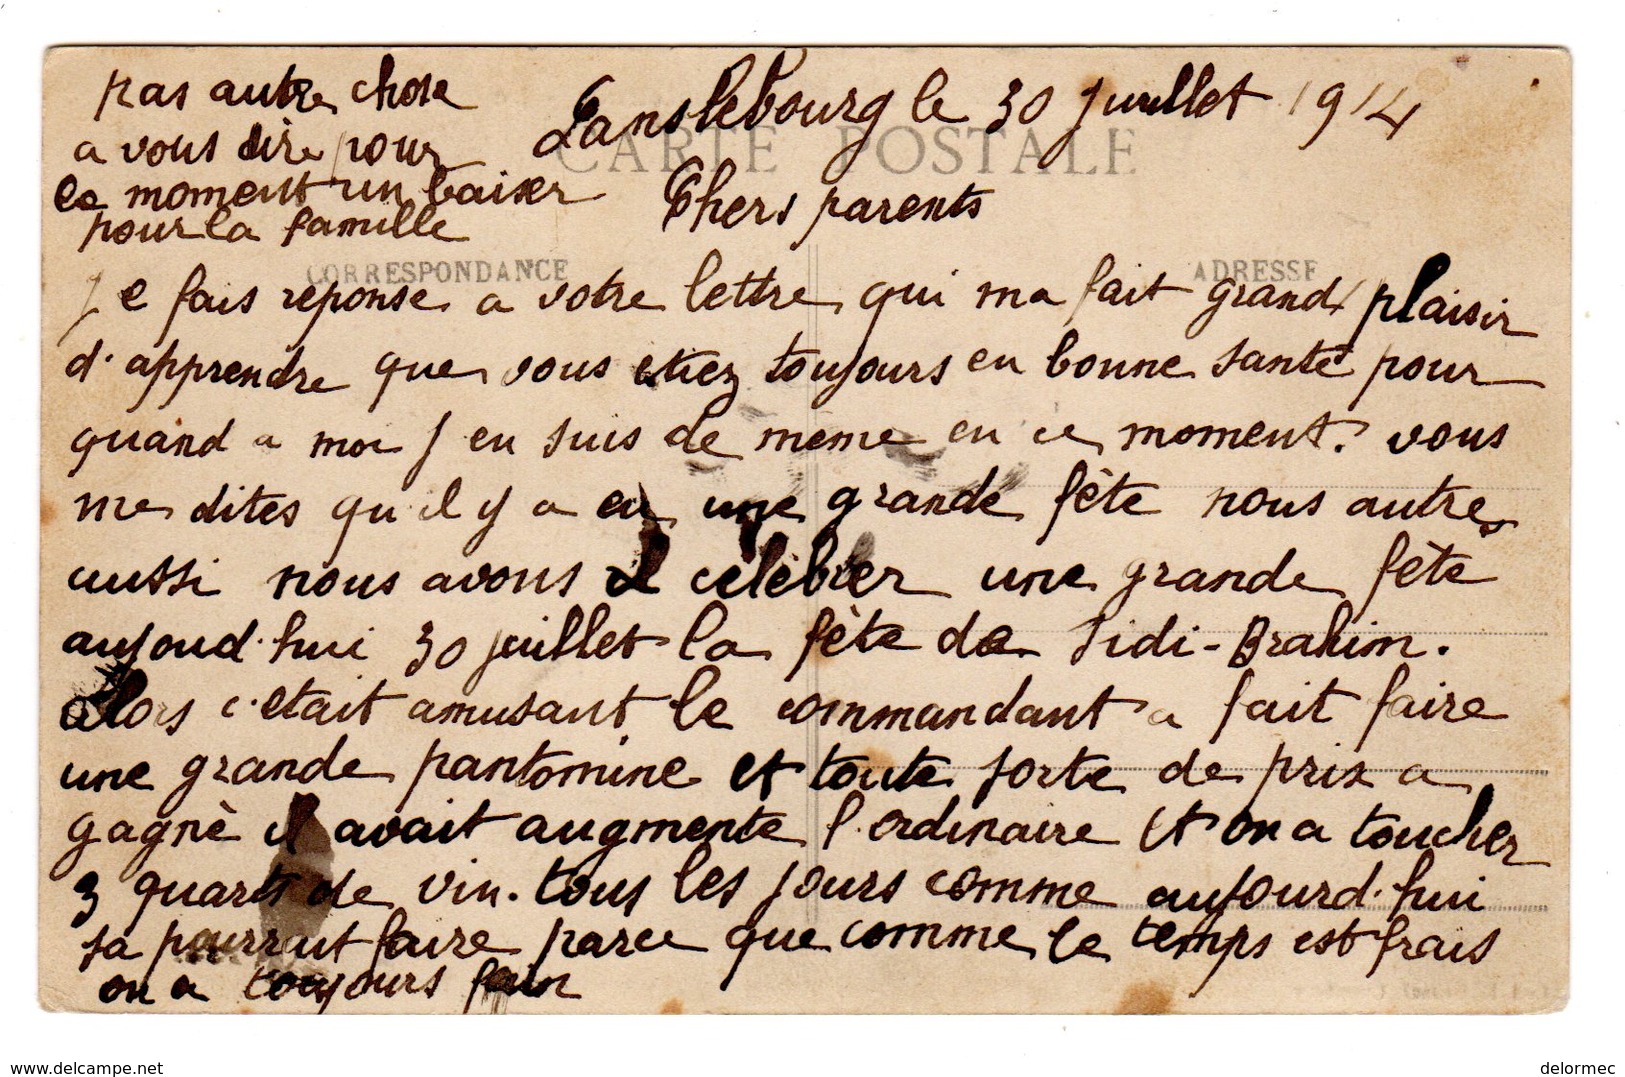 Lanslebourg le 30 juillet 1914
CARTE POSTALE
Chers parents
CORRESPONDANCE
ADRESSE
Je fais reponse a votre lettre qui ma fait grand plaisir
d'apprendre que vous etiez toujours en bonne santé pour
quand a moi j en suis de même en ce moment. vous
me dites qu il y a eu une grande fête nous autres
aussi nous avons célèbrer une grande fête
aujoud'hui 30 juillet la fête de Sidi-Brahim.
alors c'etait amusant le commandant a fait faire
une grande pantomine et toute sorte de prix a
gagnè il avait augmente l'ordinaire et on a toucher
3 quarts de vin. tous les jours comme aujourd'hui
sa pourrait faire parce que comme le temps est frais
on a toujours faim
pas autre chose
a vous dire pour
le moment un baiser
pour la famille
www.delcampe.net
delormec